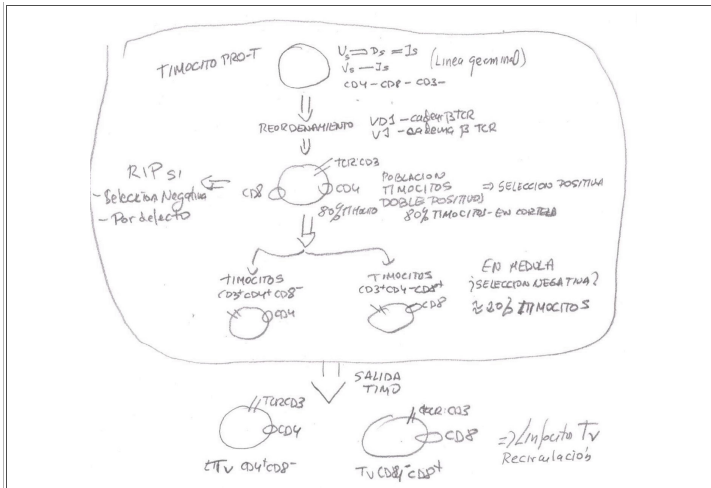 TIMOCITO PRO-T
Vs ⇒ Ds = Js (Linea germinal)
Vs — Js
CD4- CD8- CD3-
REORDENAMIENTO
VDJ - cadena β TCR
VJ - cadena β TCR
TCR:CD3
RIP si
- Selección Negativa
- Por defecto
CD8
CD4
POBLACION
TIMOCITOS ⇒ SELECCION POSITIVA
DOBLE POSITIVOS
80% TIMOCITO
80% TIMOCITOS - EN CORTEZA
TIMOCITOS
CD3+CD4+CD8-
CD4
TIMOCITOS
CD3+CD4-CD8+
CD8
EN MEDULA
¿SELECCION NEGATIVA?
≈20% TIMOCITOS
SALIDA
TIMO
TCR:CD3
CD4
Tv CD4+CD8-
TCR:CD3
CD8
Tv CD4-CD8+
⇒ Linfocito Tv
Recirculación